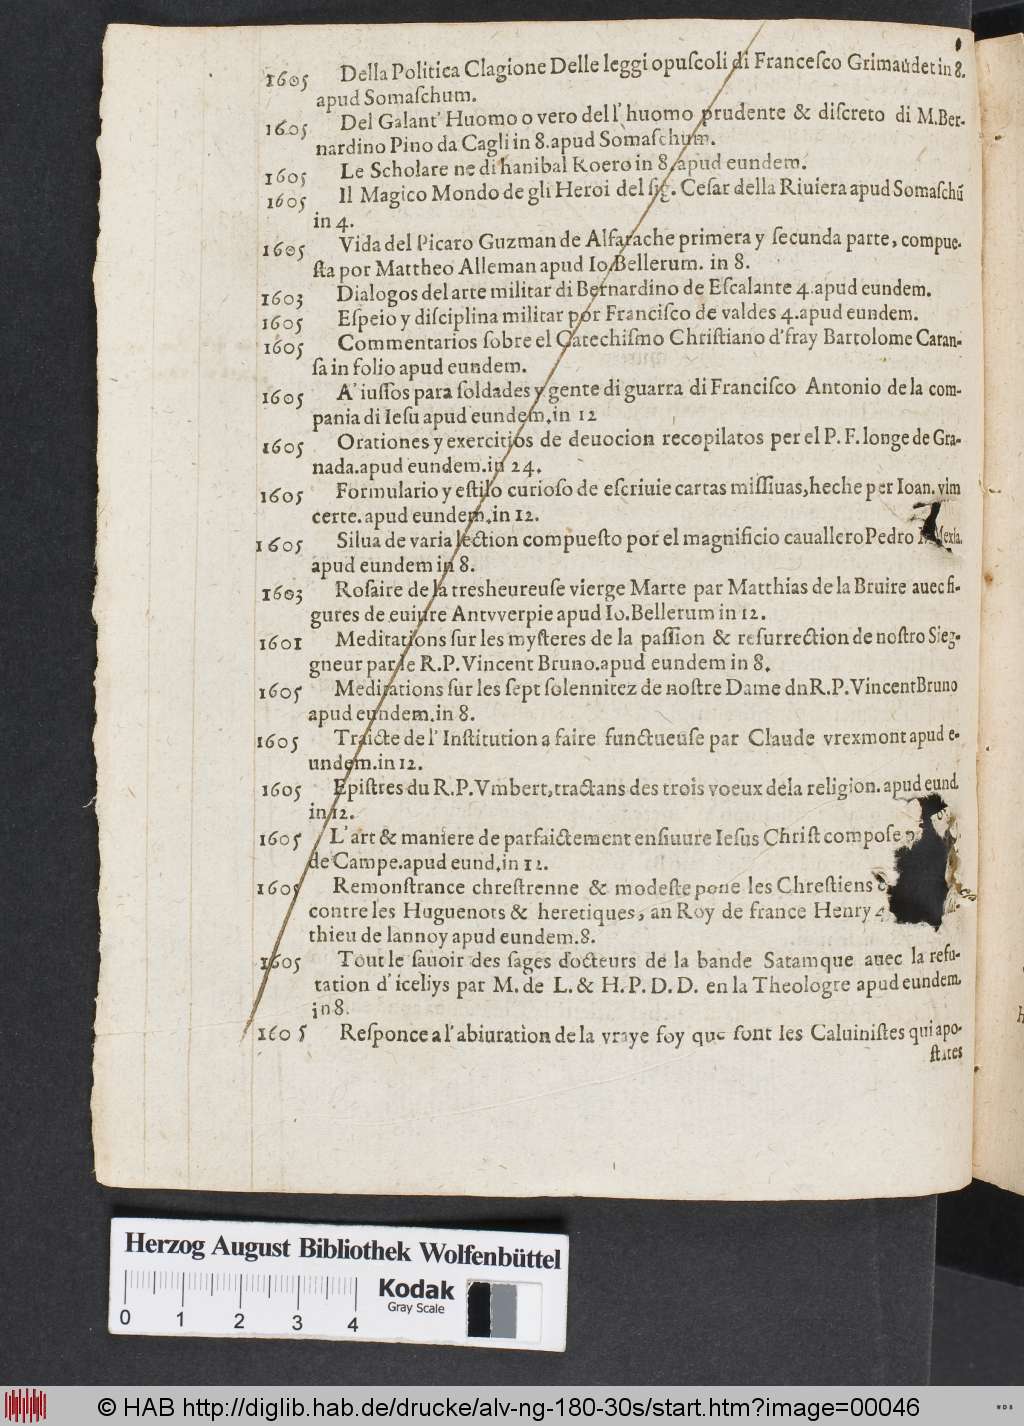 1605 Della Politica Clagione Delle leggi opuſcoli di Franceſco Grimaūdet in 8.
apud Somaſchum.
1605 Del Galant' Huomo o vero dell' huomo prudente & diſcreto di M.Ber-
nardino Pino da Cagli in 8.apud Somaſchum.
1605 Le Scholare ne di hanibal Roero in 8.apud eundem.
1605 Il Magico Mondo de gli Heroi del ſig. Ceſar della Riuiera apud Somaſchū
in 4.
1605 Vida del Picaro Guzman de Alfarache primera y ſecunda parte, compue-
ſta por Mattheo Alleman apud Io.Bellerum. in 8.
1603 Dialogos del arte militar di Bernardino de Eſcalante 4.apud eundem.
1605 Eſpeio y diſciplina militar por Franciſco de valdes 4.apud eundem.
1605 Commentarios ſobre el Catechiſmo Chriſtiano d'fray Bartolome Caran-
ſa in folio apud eundem.
1605 A'iuſſos para ſoldades y gente di guarra di Franciſco Antonio de la com-
pania di Ieſu apud eundem.in 12
1605 Orationes y exercitios de deuocion recopilatos per el P. F. longe de Gra-
nada.apud eundem.in 24.
1605 Formulario y eſtilo curioſo de eſcriuie cartas miſſiuas,heche per Ioan. vim
certe.apud eundem.in 12.
1605 Silua de varia lection compueſto por el magnificio cauallero Pedro Mexia.
apud eundem in 8.
1603 Roſaire de la tresheureuſe vierge Marte par Matthias de la Bruire auec fi-
gures de euiure Antvverpie apud Io.Bellerum in 12.
1601 Meditations ſur les myſteres de la paſſion & reſurrection de noſtro Sieg-
gneur par le R.P.Vincent Bruno.apud eundem in 8.
1605 Meditations ſur les ſept ſolennitez de noſtre Dame dn R.P.Vincent Bruno
apud eundem.in 8.
1605 Traicte de l' Inſtitution a faire functueuſe par Claude vrexmont apud e-
undem.in 12.
1605 Epiſtres du R.P.Vmbert,tractans des trois voeux dela religion.apud eund.
in 12.
1605 L'art & maniere de parfaictement enſiuure Ieſus Chriſt compoſe
de Campe.apud eund.in 12.
1605 Remonſtrance chreſtrenne & modeſte pone les Chreſtiens
contre les Huguenots & heretiques, an Roy de france Henry 4
thieu de lannoy apud eundem.8.
1605 Tout le ſauoir des ſages docteurs de la bande Satamque auec la refu-
tation d'iceliys par M. de L. & H. P. D. D. en la Theologre apud eundem.
in 8.
1605 Reſponce a l'abiuration de la vraye foy que ſont les Caluiniſtes qui apo-
ſtates
Herzog August Bibliothek Wolfenbüttel
Kodak
Gray Scale
0 1 2 3 4
© HAB http://diglib.hab.de/drucke/alv-ng-180-30s/start.htm?image=00046